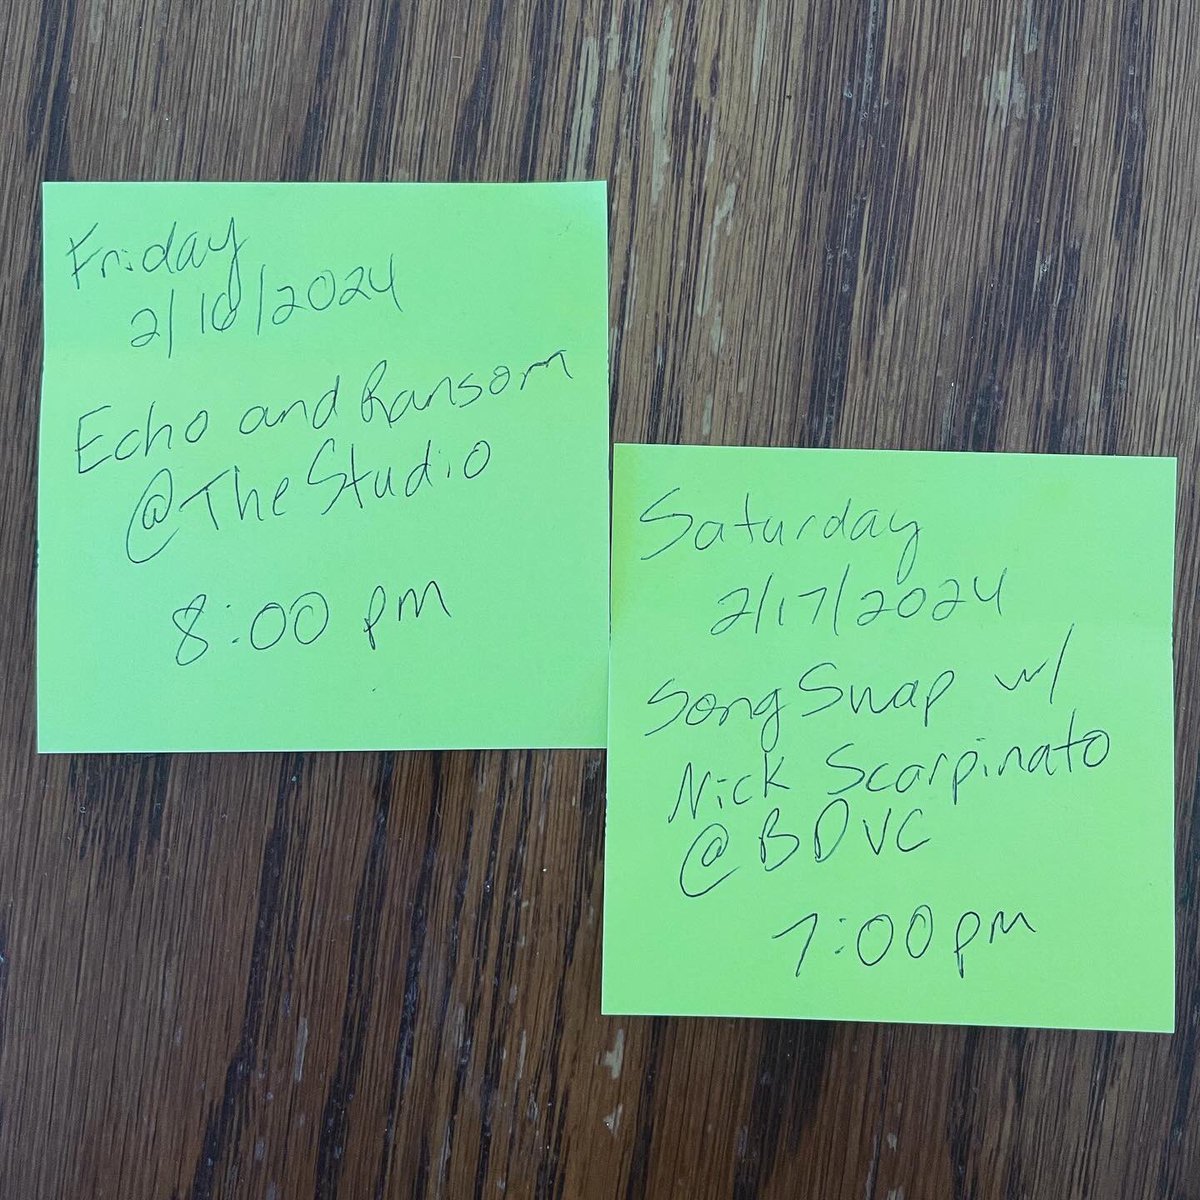 Friday
2/16/2024
Echo and Ransom
@ The Studio
8:00 pm
Saturday
2/17/2024
Song Swap w/
Nick Scarpinato
@ BDVC
7:00 pm